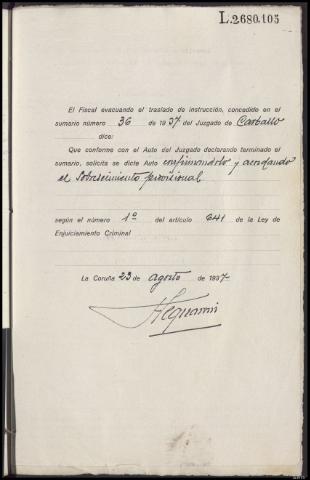 L.2680.105
El Fiscal evacuando el traslado de instrucción, concedido en el
sumario número 36 de 1937 del Juzgado de Carballo
dice:
Que conforme con el Auto del Juzgado declarando terminado el
sumario, solicita se dicte Auto confirmándolo y acordando
el sobreseimiento provisional
según el número 1º del artículo 641 de la Ley de
Enjuiciamiento Criminal
La Coruña 23 de agosto de 1937